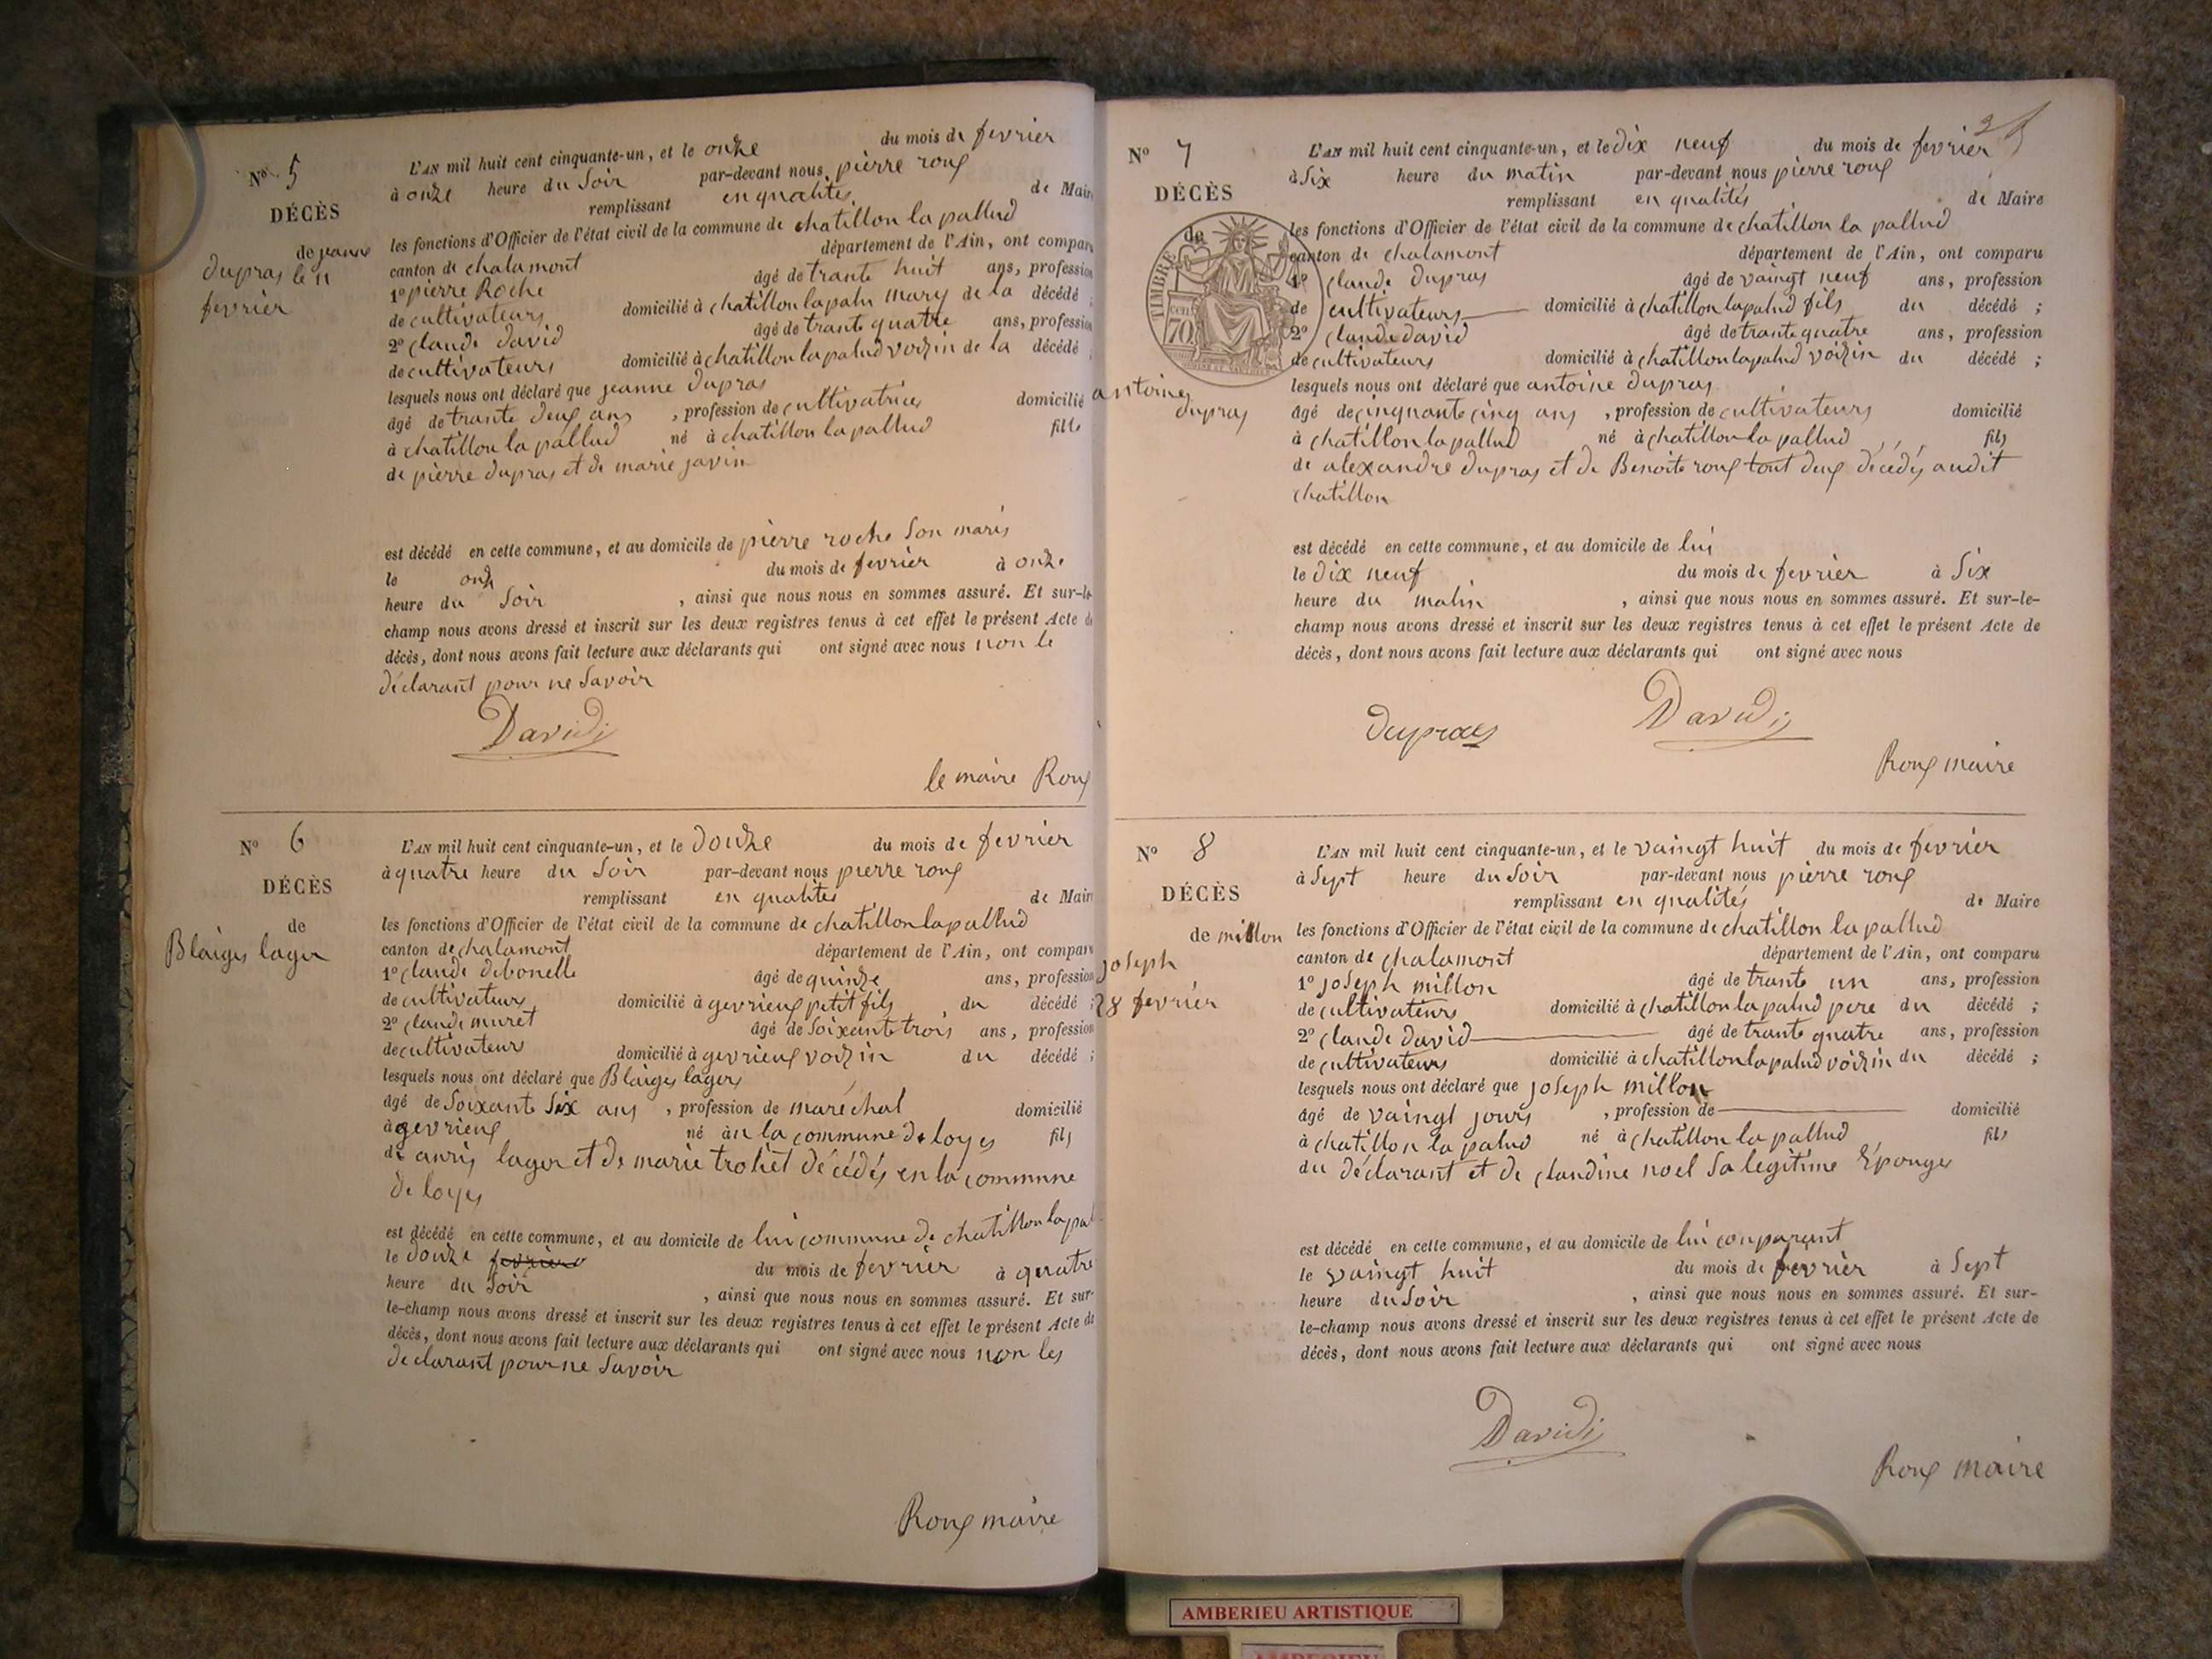 N° 5
DÉCÈS
de jeanne
dupras le 11
fevrier
L'AN mil huit cent cinquante-un, et le onze du mois de fevrier
à onze heure du Soir par-devant nous pierre roux
remplissant en qualités de Maire
les fonctions d'Officier de l'état civil de la commune de chatillon la pallud
canton de chalamont département de l'Ain, ont compar
1° pierre Roche âgé de trante huit ans, profession
de cultivateurs domicilié à chatillon lapalu mary de la décédé ;
2° claude david âgé de trante quatre ans, profession
de cultivateurs domicilié à chatillon lapalud voizin de la décédé
lesquels nous ont déclaré que jeanne dupras
âgé de trante deux ans , profession de cultivatrices domicilié
à chatillon la pallud né à chatillon la pallud fille
de pierre dupras et de marie javin
est décédé en cette commune, et au domicile de pierre roche Son maris
le onze du mois de fevrier à onze
heure du Soir , ainsi que nous nous en sommes assuré. Et sur-le-
champ nous avons dressé et inscrit sur les deux registres tenus à cet effet le présent Acte de
décès, dont nous avons fait lecture aux déclarants qui ont signé avec nous non le
déclarant pour ne Savoir
David
le maire Roux
N° 6
DÉCÈS
de
Blaiges lager
L'AN mil huit cent cinquante-un, et le douze du mois de fevrier
à quatre heure du Soir par-devant nous pierre roux
remplissant en qualités de Maire
les fonctions d'Officier de l'état civil de la commune de chatillon lapallud
canton de chalamont département de l'Ain, ont compar
1° claude debonelle âgé de quinze ans, profession
de cultivateurs domicilié à gevrieux petit fils du décédé ;
2° claude muret âgé de Soixante trois ans, profession
de cultivateurs domicilié à gevrieux voizin du décédé ;
lesquels nous ont déclaré que Blaiges lagers
âgé de Soixante Six ans , profession de maréchal domicilié
à gevrieux né à n la commune de loyes fils
de anris lager et de marie trohet décédés en la commune
de loyes
est décédé en cette commune, et au domicile de lui commune de chatillon lapal
le douze fevrier du mois de fevrier à quatre
heure du Soir , ainsi que nous nous en sommes assuré. Et sur-
le-champ nous avons dressé et inscrit sur les deux registres tenus à cet effet le présent Acte de
décès, dont nous avons fait lecture aux déclarants qui ont signé avec nous non les
declarant pour ne Savoir
Roux maire
2
N° 7
DÉCÈS
de
antoines
dupras
TIMBRE
70
L'AN mil huit cent cinquante-un, et le dix neuf du mois de fevrier
à Six heure du matin par-devant nous pierre roux
remplissant en qualités de Maire
les fonctions d'Officier de l'état civil de la commune de chatillon la pallud
canton de chalamont département de l'Ain, ont comparu
1° claude dupras âgé de vaingt neuf ans, profession
de cultivateurs domicilié à chatillon lapalud fils du décédé ;
2° claude david âgé de trante quatre ans, profession
de cultivateurs domicilié à chatillon lapalud voizin du décédé ;
lesquels nous ont déclaré que antoine dupras
âgé de cinquante cinq ans , profession de cultivateurs domicilié
à chatillon la pallud né à chatillon la pallud fils
de alexandre dupras et de Benoite roux tout deux décédés audit
chatillon
est décédé en cette commune, et au domicile de lui
le dix neuf du mois de fevrier à Six
heure du matin , ainsi que nous nous en sommes assuré. Et sur-le-
champ nous avons dressé et inscrit sur les deux registres tenus à cet effet le présent Acte de
décès, dont nous avons fait lecture aux déclarants qui ont signé avec nous
Dupras David
Roux maire
N° 8
DÉCÈS
de millon
joseph
28 fevrier
L'AN mil huit cent cinquante-un, et le vaingt huit du mois de fevrier
à Sept heure du Soir par-devant nous pierre roux
remplissant en qualités de Maire
les fonctions d'Officier de l'état civil de la commune de chatillon la pallud
canton de chalamont département de l'Ain, ont comparu
1° joseph millon âgé de trante un ans, profession
de cultivateurs domicilié à chatillon la palud pere du décédé ;
2° claude david âgé de trante quatre ans, profession
de cultivateurs domicilié à chatillon lapalud voizin du décédé ;
lesquels nous ont déclaré que joseph millon
âgé de vaingt jours , profession de domicilié
à chatillon la palud né à chatillon la pallud fils
du déclarant et de claudine noel Sa legitime Epouges
est décédé en cette commune, et au domicile de lui conparant
le vaingt huit du mois de fevrier à Sept
heure du Soir , ainsi que nous nous en sommes assuré. Et sur-
le-champ nous avons dressé et inscrit sur les deux registres tenus à cet effet le présent Acte de
décès, dont nous avons fait lecture aux déclarants qui ont signé avec nous
David
Roux maire
AMBERIEU ARTISTIQUE
AMBERIEU